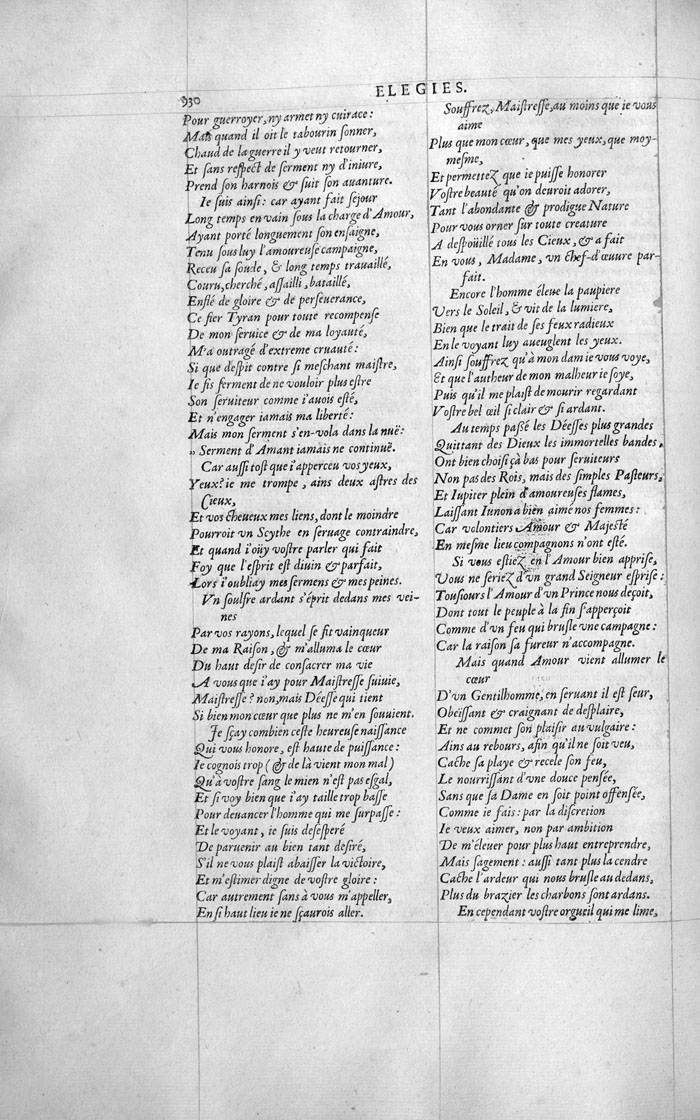 930
ELEGIES.
Pour guerroyer, ny armet ny cuirace:
Mais quand il oit le tabourin sonner,
Chaud de la guerre il y veut retourner,
Et sans respect de serment ny d'iniure,
Prend son harnois & suit son auanture.
Ie suis ainsi: car ayant fait sejour
Long temps en vain sous la charge d'Amour,
Ayant porté longuement son ensaigne,
Tenu sous luy l'amoureuse campaigne,
Receu sa soude, & long temps trauaillé,
Couru, cherché, assailli, bataillé,
Enflé de gloire & de perseuerance,
Ce fier Tyran pour toute recompense
De mon seruice & de ma loyauté,
M'a outragé d'extreme cruauté:
Si que despit contre si meschant maistre,
Ie fis serment de ne vouloir plus estre
Son seruiteur comme i'auois esté,
Et n'engager iamais ma liberté:
Mais mon serment s'en-vola dans la nuë:
„ Serment d'Amant iamais ne continuë.
Car aussi tost que i'apperceu vos yeux,
Yeux? ie me trompe, ains deux astres des
Cieux,
Et vos cheueux mes liens, dont le moindre
Pourroit vn Scythe en seruage contraindre,
Et quand i'oüy vostre parler qui fait
Foy que l'esprit est diuin & parfait,
Lors i'oubliay mes sermens & mes peines.
Vn soulfre ardant s'éprit dedans mes vei-
nes
Par vos rayons, lequel se fit vainqueur
De ma Raison, & m'alluma le cœur
Du haut desir de consacrer ma vie
A vous que i'ay pour Maistresse suiuie,
Maistresse? non, mais Déesse qui tient
Si bien mon cœur que plus ne m'en souuient.
Je sçay combien ceste heureuse naissance
Qui vous honore, est haute de puissance:
Ie cognois trop (& de là vient mon mal)
Qu'à vostre sang le mien n'est pas esgal,
Et si voy bien que i'ay taille trop basse
Pour deuancer l'homme qui me surpasse:
Et le voyant, ie suis desesperé
De paruenir au bien tant desiré,
S'il ne vous plaist abaisser la victoire,
Et m'estimer digne de vostre gloire:
Car autrement sans à vous m'appeller,
En si haut lieu ie ne sçaurois aller.
Souffrez, Maistresse, au moins que ie vous
aime
Plus que mon cœur, que mes yeux, que moy-
mesme,
Et permettez que ie puisse honorer
Vostre beauté qu'on deuroit adorer,
Tant l'abondante & prodigue Nature
Pour vous orner sur toute creature
A despoüillé tous les Cieux, & a fait
En vous, Madame, vn chef-d'œuure par-
fait.
Encore l'homme éleue la paupiere
Vers le Soleil, & vit de la lumiere,
Bien que le trait de ses feux radieux
En le voyant luy aueuglent les yeux.
Ainsi souffrez qu'à mon dam ie vous voye,
Et que l'autheur de mon malheur ie soye,
Puis qu'il me plaist de mourir regardant
Vostre bel œil si clair & si ardant.
Au temps passé les Déesses plus grandes
Quittant des Dieux les immortelles bandes,
Ont bien choisi çà bas pour seruiteurs
Non pas des Rois, mais des simples Pasteurs,
Et Iupiter plein d'amoureuses flames,
Laissant Iunon a bien aimé nos femmes:
Car volontiers Amour & Majesté
En mesme lieu compagnons n'ont esté.
Si vous estiez en l'Amour bien apprise,
Vous ne seriez d'vn grand Seigneur esprise:
Tousiours l'Amour d'vn Prince nous deçoit,
Dont tout le peuple à la fin s'apperçoit
Comme d'vn feu qui brusle vne campagne:
Car la raison sa fureur n'accompagne.
Mais quand Amour vient allumer le
cœur
D'vn Gentilhomme, en seruant il est seur,
Obeïssant & craignant de desplaire,
Et ne commet son plaisir au vulgaire:
Ains au rebours, afin qu'il ne soit veu,
Cache sa playe & recele son feu,
Le nourrissant d'vne douce pensée,
Sans que sa Dame en soit point offensée,
Comme ie fais: par la discretion
Ie veux aimer, non par ambition
De m'éleuer pour plus haut entreprendre,
Mais sagement: aussi tant plus la cendre
Cache l'ardeur qui nous brusle au dedans,
Plus du brazier les charbons sont ardans.
En cependant vostre orgueil qui me lime,